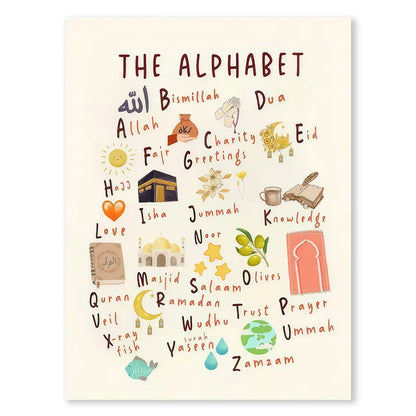 THE ALPHABET
الله Bismillah Dua
Allah
Charity Eid
Fajr Greetings
Hajj
Isha Jummah Knowledge
Love Noor
Masjid Salaam Olives
Quran Ramadan Prayer
Veil Wudhu Trust Ummah
X-ray fish
surah
Yaseen Zamzam